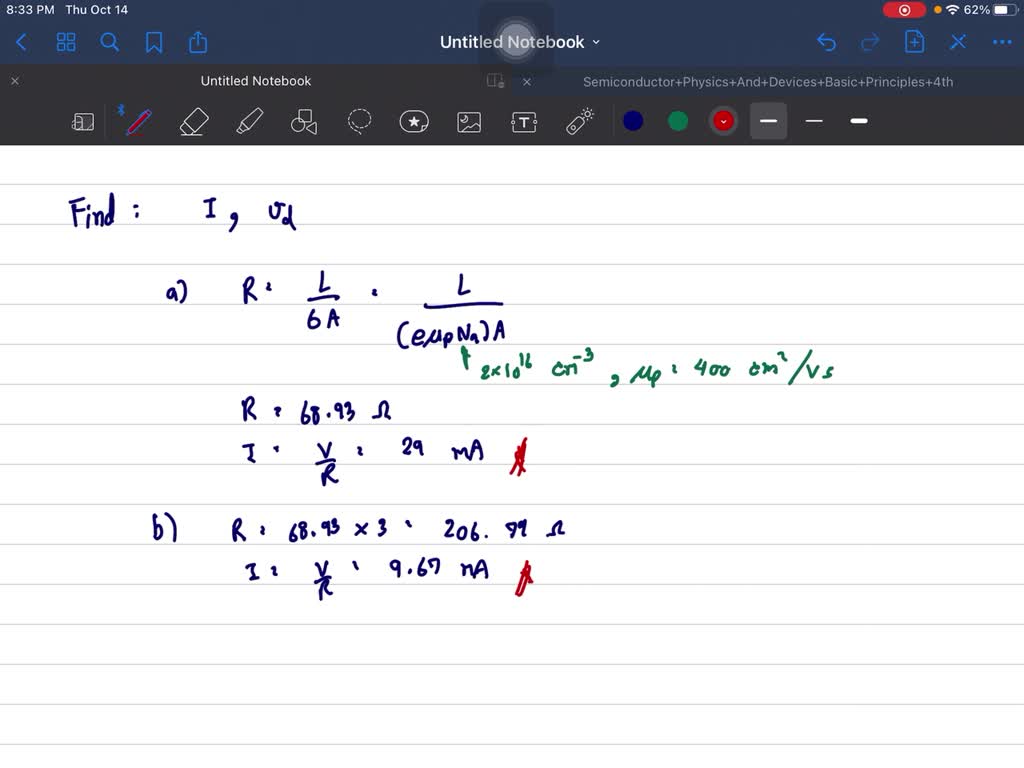 8:33 PM Thu Oct 14
62%
Untitled Notebook
Untitled Notebook
Semiconductor+Physics+And+Devices+Basic+Principles+4th
Find : I, υd
a) R = L/σA = L/(eμpNa)A
2×10¹⁶ cm⁻³, μp = 400 cm²/Vs
R = 68.93 Ω
I = V/R = 29 mA
b) R = 68.93 × 3 = 206.79 Ω
I = V/R = 9.67 mA